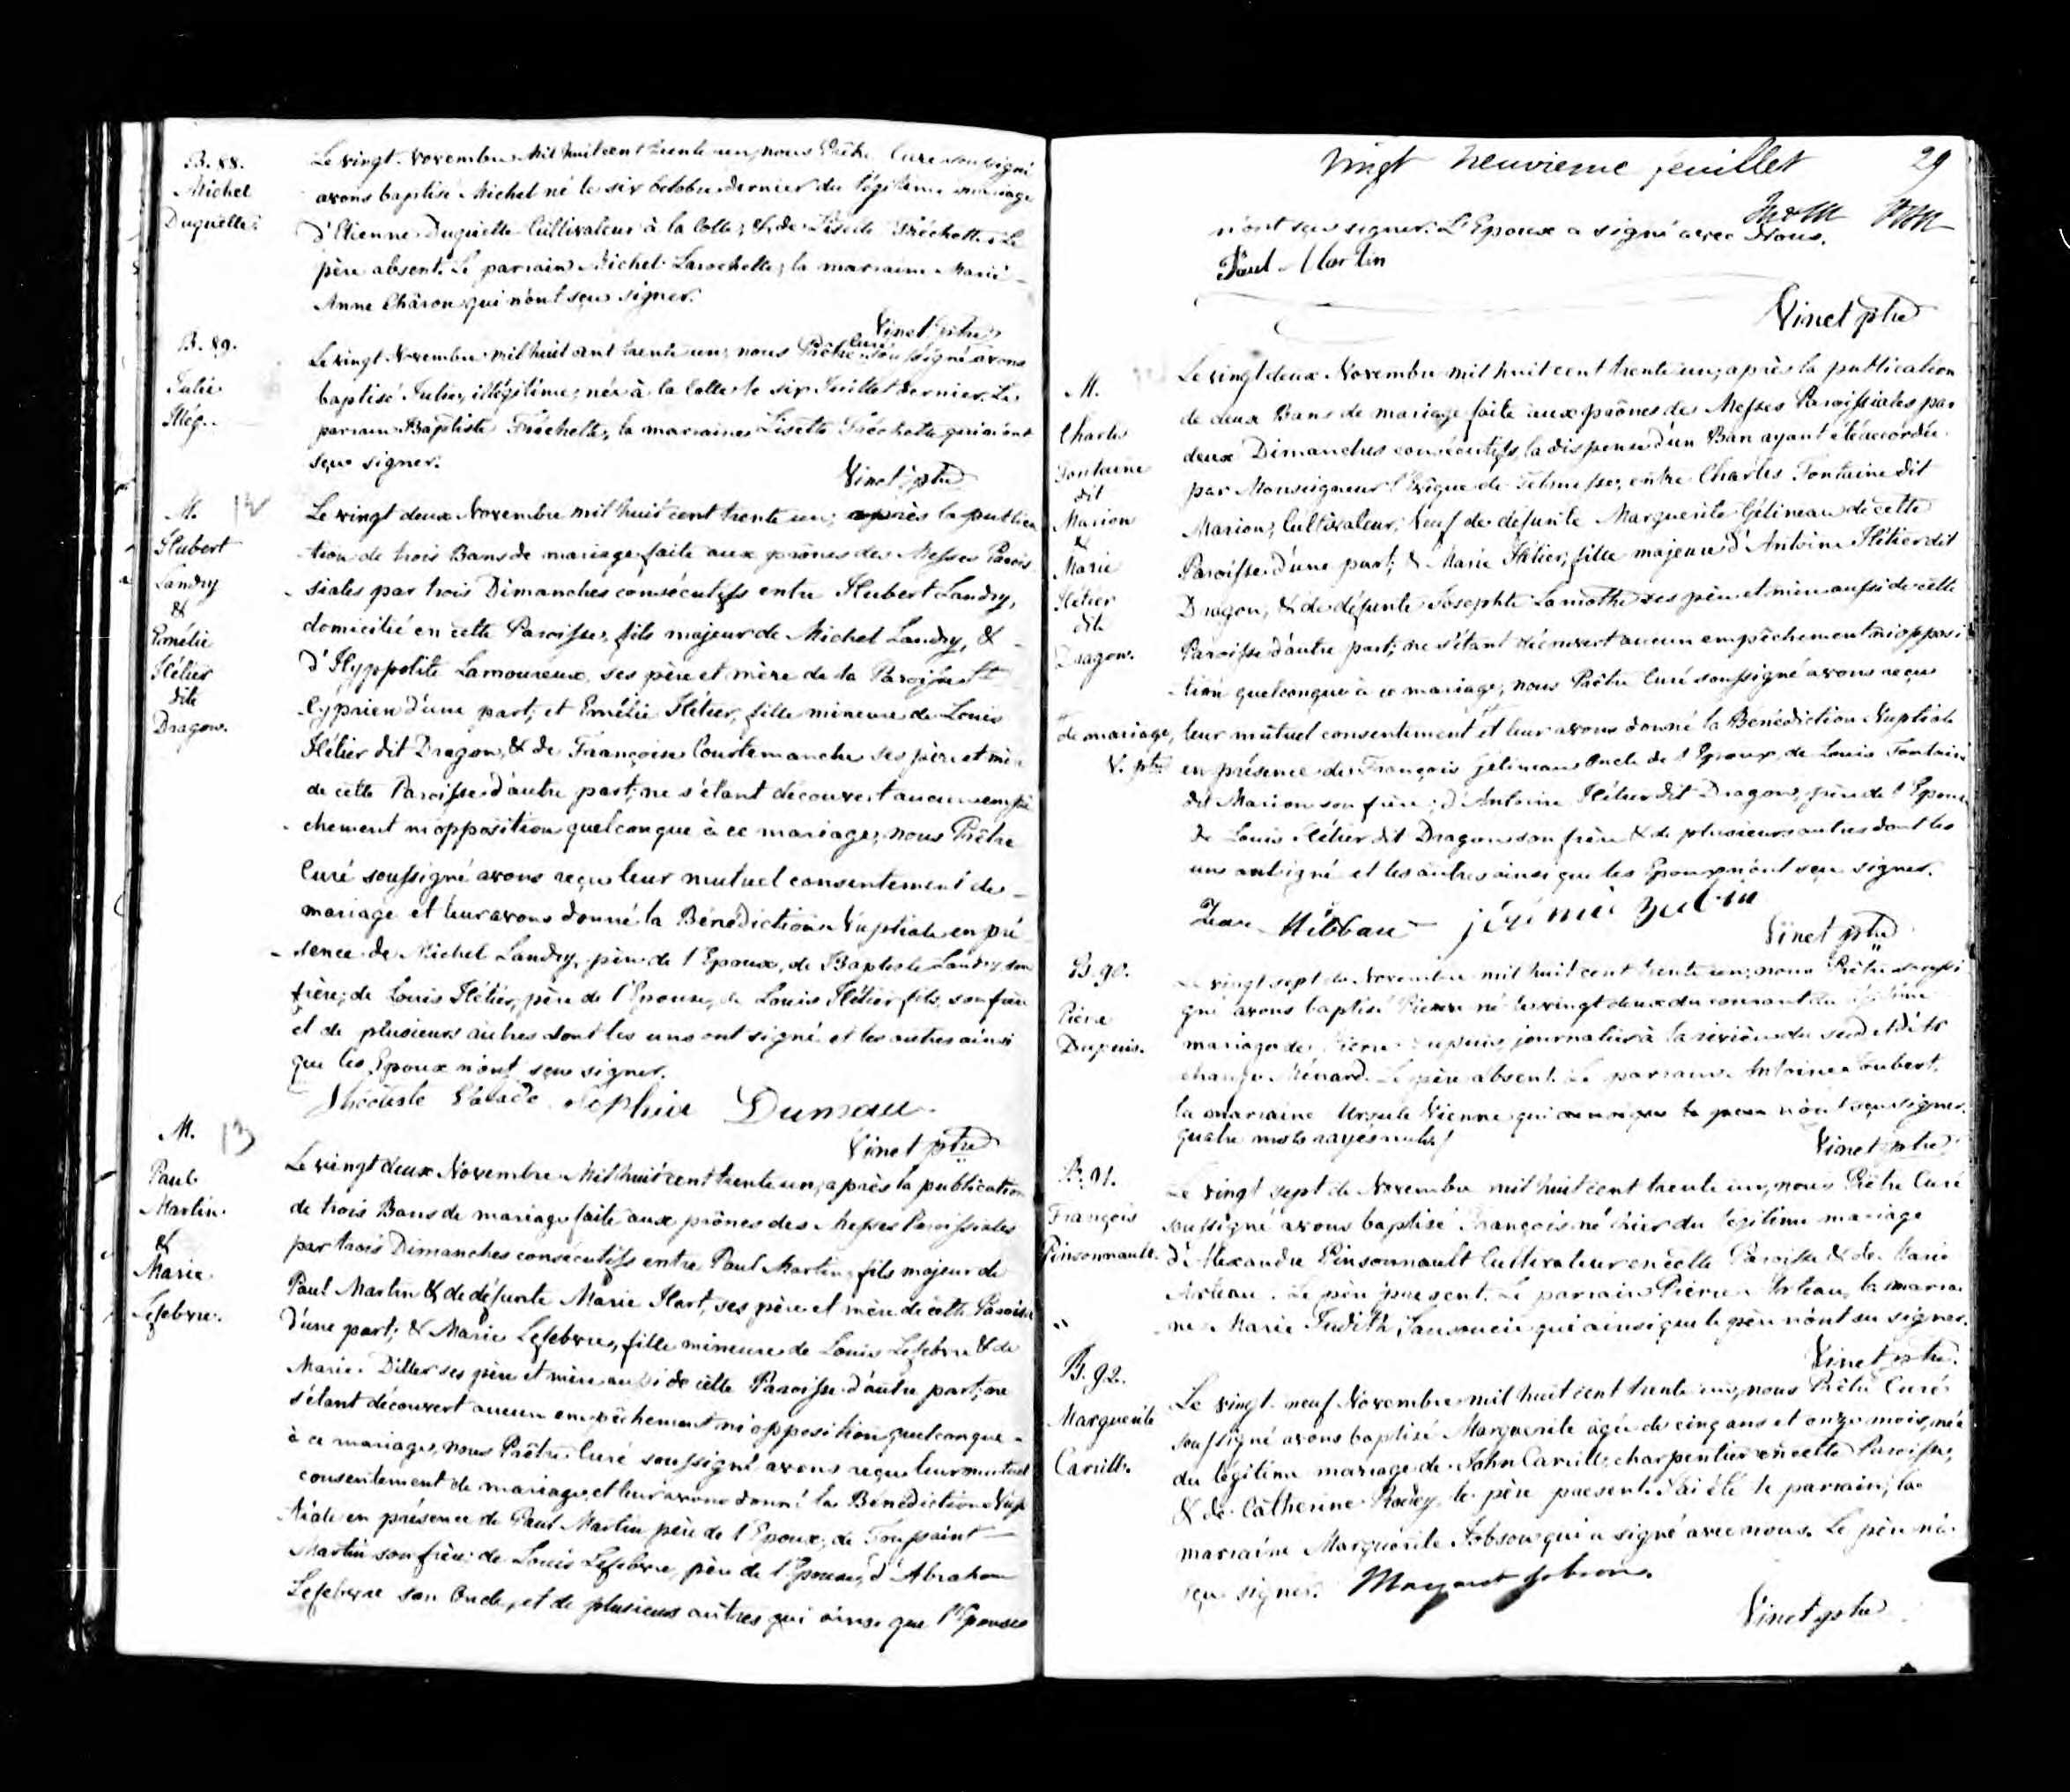 B. 88.
Michel
Duquette.
Le vingt Novembre Mil huit cent trente un, nous Prêtre Curé soussigné
avons baptisé Michel né le six Octobre dernier du légitime mariage
d'Etienne Duquette Cultivateur à la Colle, & de Lisette Fréchette. Le
père absent. Le parrain Michel Larochelle, la marraine Marie
Anne Châron qui n'ont sçu signer.
Vinet ptre
B. 89.
Julie
Illég.
Le vingt Novembre mil huit cent trente un, nous Prêtre Curé soussigné avons
baptisé Julie, illégitime, née à la Colle le six Juillet dernier. Le
parrain Baptiste Fréchette, la marraine Lisette Fréchette qui n'ont
sçu signer.
Vinet ptre
M. 12
Hubert
Landry
&
Emélie
Hétier
dite
Dragon.
Le vingt deux Novembre mil huit cent trente un, après la publica
tion de trois Bans de mariage faite aux prônes des Messes Parois
siales par trois Dimanches consécutifs entre Hubert Landry,
domicilié en cette Paroisse, fils majeur de Michel Landry, &
d'Hyppolite Lamoureux, ses père et mère de la Paroisse St
Cyprien d'une part; et Emélie Hétier, fille mineure de Louis
Hétier dit Dragon, & de Françoise Courtemanche ses père et mère
de cette Paroisse d'autre part; ne s'étant découvert aucun empê
chement ni opposition quelconque à ce mariage, nous Prêtre
Curé soussigné avons reçu leur mutuel consentement de
mariage et leur avons donné la Bénédiction Nuptiale en pré
sence de Michel Landry, père de l'Epoux, de Baptiste Landry son
frère; de Louis Hétier, père de l'Epouse, de Louis Hétier fils, son frère
et de plusieurs autres dont les uns ont signé et les autres ainsi
que les Epoux n'ont sçu signer.
Sophia Dumau
Vinet ptre
M. 13
Paul
Martin
&
Marie
Lefebvre.
Le vingt deux Novembre Mil huit cent trente un, après la publication
de trois Bans de mariage faite aux prônes des Messes Paroissiales
par trois Dimanches consécutifs entre Paul Martin, fils majeur de
Paul Martin & de défunte Marie Hart, ses père et mère de cette Paroisse
d'une part; & Marie Lefebvre, fille mineure de Louis Lefebvre & de
Marie Diller ses père et mère aussi de cette Paroisse d'autre part; ne
s'étant découvert aucun empêchement ni opposition quelconque
à ce mariage, nous Prêtre Curé soussigné avons reçu leur mutuel
consentement de mariage, et leur avons donné la Bénédiction Nup
tiale en présence de Paul Martin père de l'Epoux, de Toussaint
Martin son frère; de Louis Lefebvre, père de l'Epouse, d'Abraham
Lefebvre son Oncle, et de plusieurs autres qui ainsi que l'Epouse
vingt neuvieme feuillet 29
n'ont sçu signer. L'Epoux a signé avec Nous.
Paul Martin
Vinet ptre
M.
Charles
Fontaine
dit
Marion
&
Marie
Hétier
dite
Dragon.
Le vingt deux Novembre mil huit cent trente un, après la publication
de deux Bans de mariage faite aux prônes des Messes Paroissiales par
deux Dimanches consécutifs la dispense d'un Ban ayant été accordée
par Monseigneur l'Evêque de Telmesse, entre Charles Fontaine dit
Marion, Cultivateur, Veuf de défunte Marguerite Gélineau de cette
Paroisse d'une part; & Marie Hétier, fille majeure d'Antoine Hétier dit
Dragon, & de défunte Josephte Lamothe ses père et mère aussi de cette
Paroisse d'autre part; ne s'étant découvert aucun empêchement ni opposi
tion quelconque à ce mariage, nous Prêtre Curé soussigné avons reçu
de mariage, leur mutuel consentement et leur avons donné la Bénédiction Nuptiale
V. ptre en présence de François Gélineau Oncle de l'Epoux, de Louis Fontaine
dit Marion son frère; d'Antoine Hétier dit Dragon, père de l'Epouse
de Louis Hétier dit Dragon son frère & de plusieurs autres dont les
uns ont signé et les autres ainsi que les Epoux n'ont sçu signer.
Vinet ptre
B. 90.
Pierre
Dupuis.
Le vingt sept de Novembre mil huit cent trente un, nous Prêtre soussi
gné avons baptisé Pierre né le vingt deux du courant du légitime
mariage de Pierre Dupuis, journalier à la rivière du sud et d'Ar
change Ménard. Le père absent. Le parrain Antoine Joubert,
la marraine Ursule Vienne qui n'ont sçu signer.
quatre mots rayés nuls.
Vinet ptre
B. 91.
François
Pinsonnault.
Le vingt sept de Novembre mil huit cent trente un, nous Prêtre Curé
soussigné avons baptisé François né hier du légitime mariage
d'Alexandre Pinsonnault Cultivateur en cette Paroisse & de Marie
Arteau. Le père present. Le parrain Pierre Arteau, la marrai
ne Marie Judith Sansoucie qui ainsi que le père n'ont su signer.
Vinet ptre.
B. 92.
Marguerite
Carille.
Le vingt neuf Novembre mil huit cent trente un, nous Prêtre Curé
soussigné avons baptisé Marguerite agée de cinq ans et onze mois, née
du légitime mariage de John Carille, charpentier en cette Paroisse,
& de Catherine Rodey le père present. J'ai été le parrain, la
marraine Marguerite Jobson qui a signé avec nous. Le père n'a
sçu signer. Margaret Jobson.
Vinet ptre